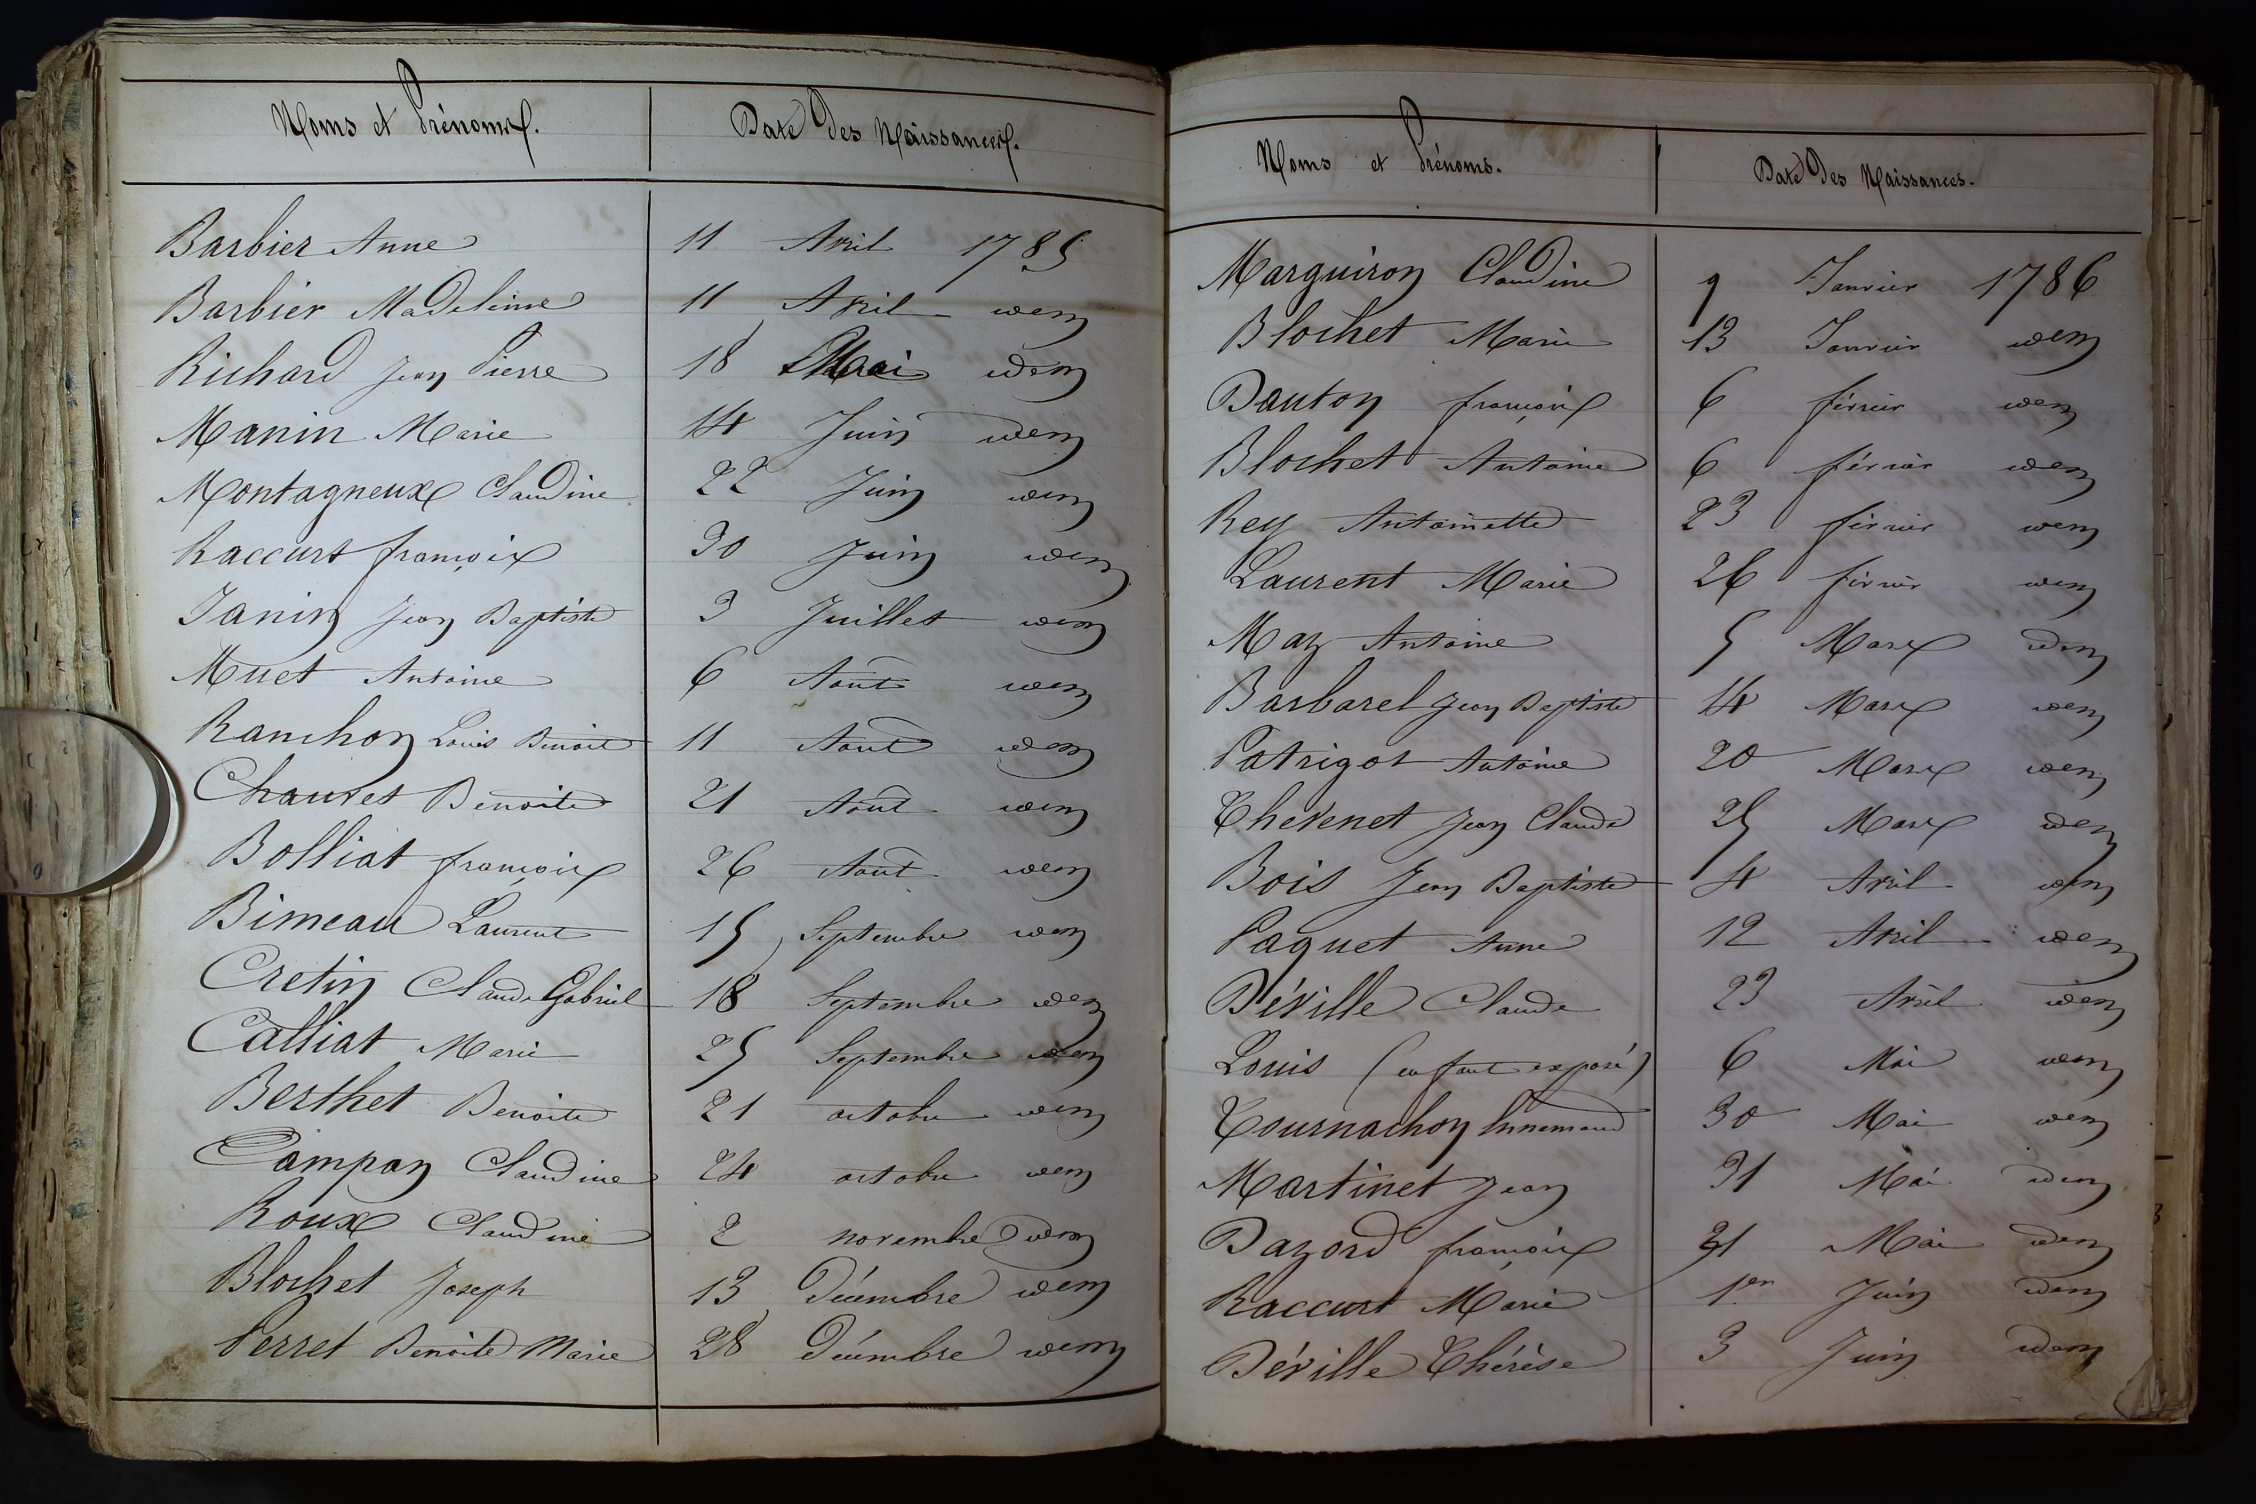 Noms et Prénoms. Date des Naissances.
Barbier Anne 11 Avril 1785
Barbier Madeleine 11 Avril idem
Richard Jean Pierre 18 Mai idem
Manin Marie 14 Juin idem
Montagneux Claudine 22 Juin idem
Raccurt françois 30 Juin idem
Janin Jean Baptiste 3 Juillet idem
Muet Antoine 6 Aout idem
Ranchon Louis Benoit 11 Aout idem
Chauvet Benoite 21 Aout idem
Bolliat françois 26 Aout idem
Bimeau Laurent 15 Septembre idem
Cretin Claude Gabriel 18 Septembre idem
Calliat Marie 25 Septembre idem
Berthet Benoite 21 octobre idem
Campan Claudine 24 octobre idem
Roux Claudine 2 novembre idem
Blochet Joseph 13 Décembre idem
Perret Benoite Marie 28 Décembre idem
Noms et Prénoms. Date des Naissances.
Marguiron Claudine 9 Janvier 1786
Blochet Marie 13 Janvier idem
Dauton françois 6 février idem
Blochet Antoine 6 février idem
Rey Antoinette 23 février idem
Laurent Marie 26 février idem
Maz Antoine 5 Mars idem
Barbarel Jean Baptiste 14 Mars idem
Patrigot Antoine 20 Mars idem
Thevenet Jean Claude 25 Mars idem
Bois Jean Baptiste 4 Avril idem
Paquet Anne 12 Avril idem
Déville Claude 23 Avril idem
Louis (enfant exposé) 6 Mai idem
Tournachon Ennemond 30 Mai idem
Martinet Jean 31 Mai idem
Dazord françois 31 Mai idem
Raccurt Marie 1er Juin idem
Déville Thérèse 3 Juin idem